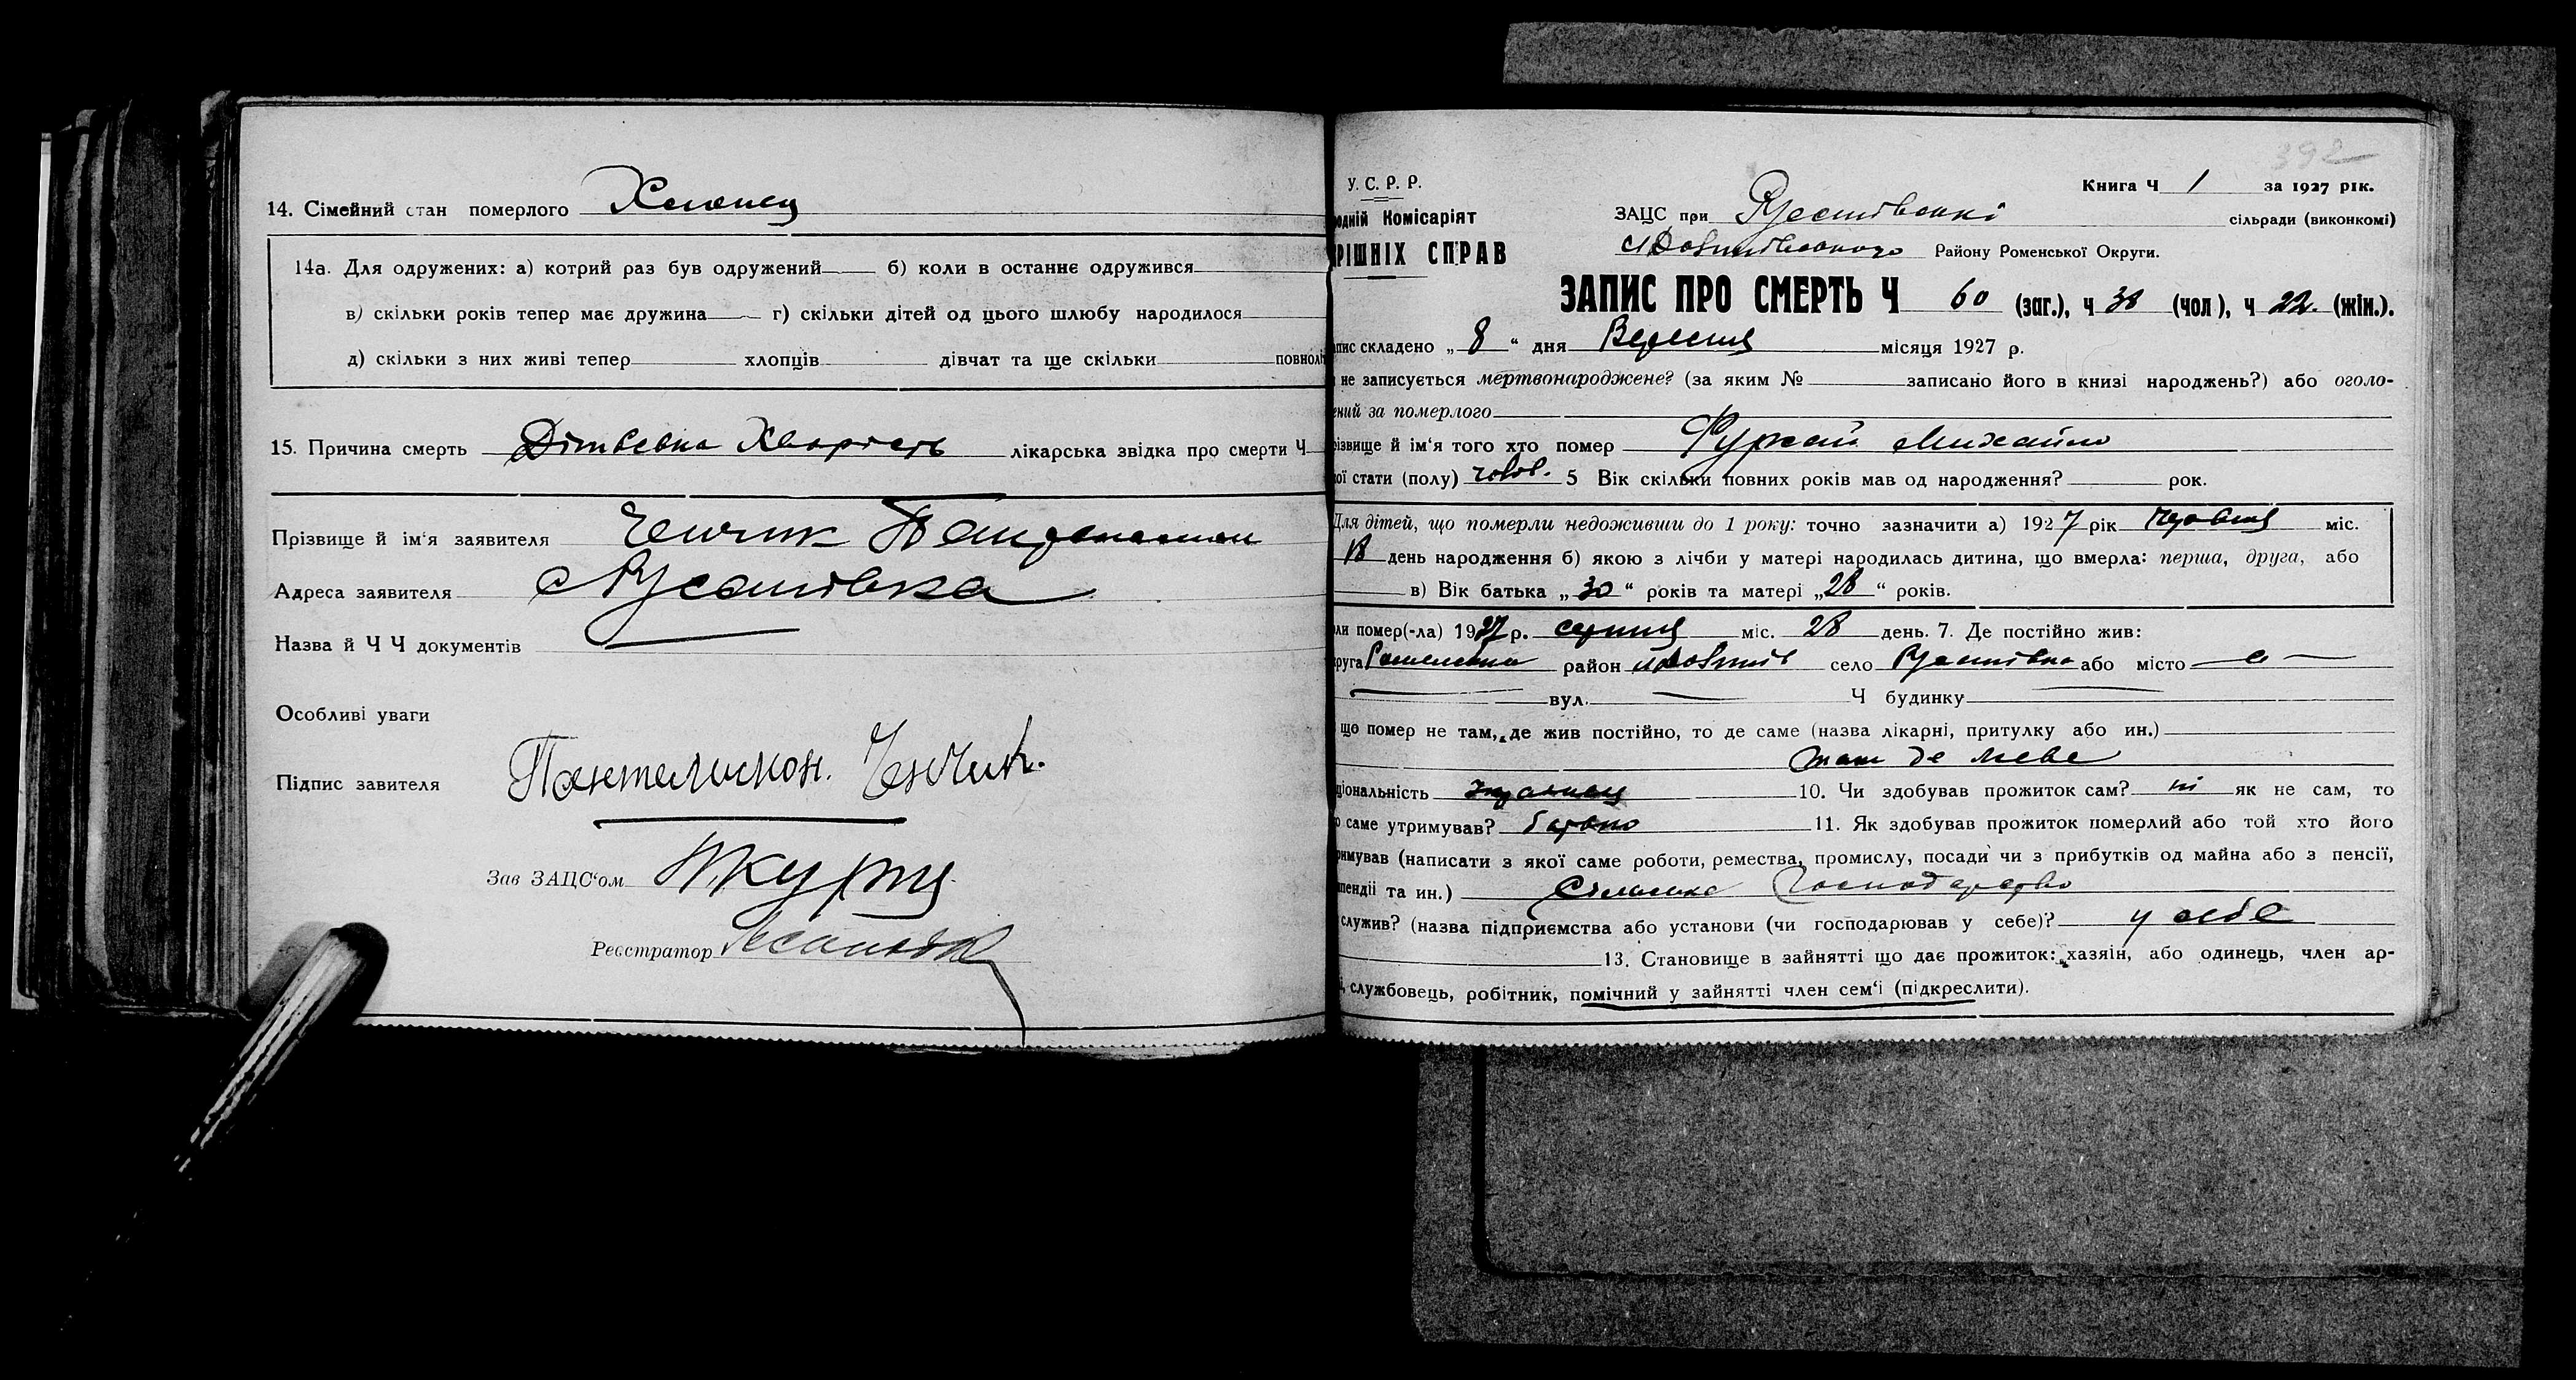 14. Сімейний стан померлого Хлопец
14а. Для одружених: а) котрий раз був одружений б) коли в останнє одружився
в) скільки років тепер має дружина г) скільки дітей од цього шлюбу народилося
д) скільки з них живі тепер хлопців дівчат та ще скільки повноліт
15. Причина смерть лікарська звідка про смерти Ч
Прізвище й ім'я заявителя Ченчик
Адреса заявителя с Русанівка
Назва й Ч Ч документів
Особливі уваги
Підпис завителя Пантелимон. Ченчик.
Зав ЗАЦС'ом
Реєстратор
392
У. С. Р. Р.
Книга Ч 1 за 1927 рік.
одній Комісаріят
ЗАЦС при сільради (виконкомі)
РІШНІХ СПРАВ
Району Роменської Округи.
ЗАПИС ПРО СМЕРТЬ Ч 60 (заг.), ч 38 (чол), ч 22. (жін.).
пис складено „ 8 " дня Вересня місяця 1927 р.
не записується мертвонароджене? (за яким № записано його в книзі народжень?) або оголо-
ений за померлого
різвище й ім'я того хто помер Михайло
кої стати (полу) чолов. 5 Вік скільки повних років мав од народження? рок.
Для дітей, що померли недоживши до 1 року: точно зазначити а) 1927 рік міс.
18 день народження б) якою з лічби у матері народилась дитина, що вмерла: перша, друга, або
в) Вік батька „ 30 " років та матері „ 28 " років.
ли помер(-ла) 1927 р. серпня міс. 28 день. 7. Де постійно жив:
круга Роменська район село Русанівка або місто
вул. Ч будинку
що помер не там, де жив постійно, то де саме (назва лікарні, притулку або ин.)
там де живе
ціональність Українец 10. Чи здобував прожиток сам? ні як не сам, то
о саме утримував? батько 11. Як здобував прожиток померлий або той хто його
римував (написати з якої саме роботи, ремества, промислу, посади чи з прибутків од майна або з пенсії,
пендії та ин.) Сільське Господарство
служив? (назва підприємства або установи (чи господарював у себе)? у себе
13. Становище в зайнятті що дає прожиток: хазяін, або одинець, член ар-
і, службовець, робітник, помічний у зайнятті член сем'і (підкреслити).